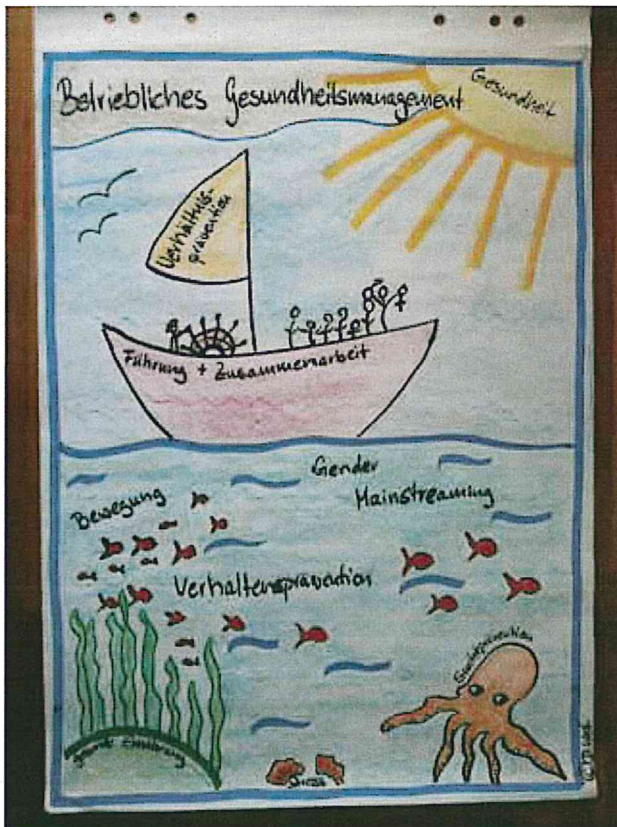 Betriebliches Gesundheitsmanagement
Gesundheit
Verhältnis-
prävention
Führung + Zusammenarbeit
Gender
Mainstreaming
Bewegung
Verhaltensprävention
Suchtprävention
gesunde Ernährung
Stress